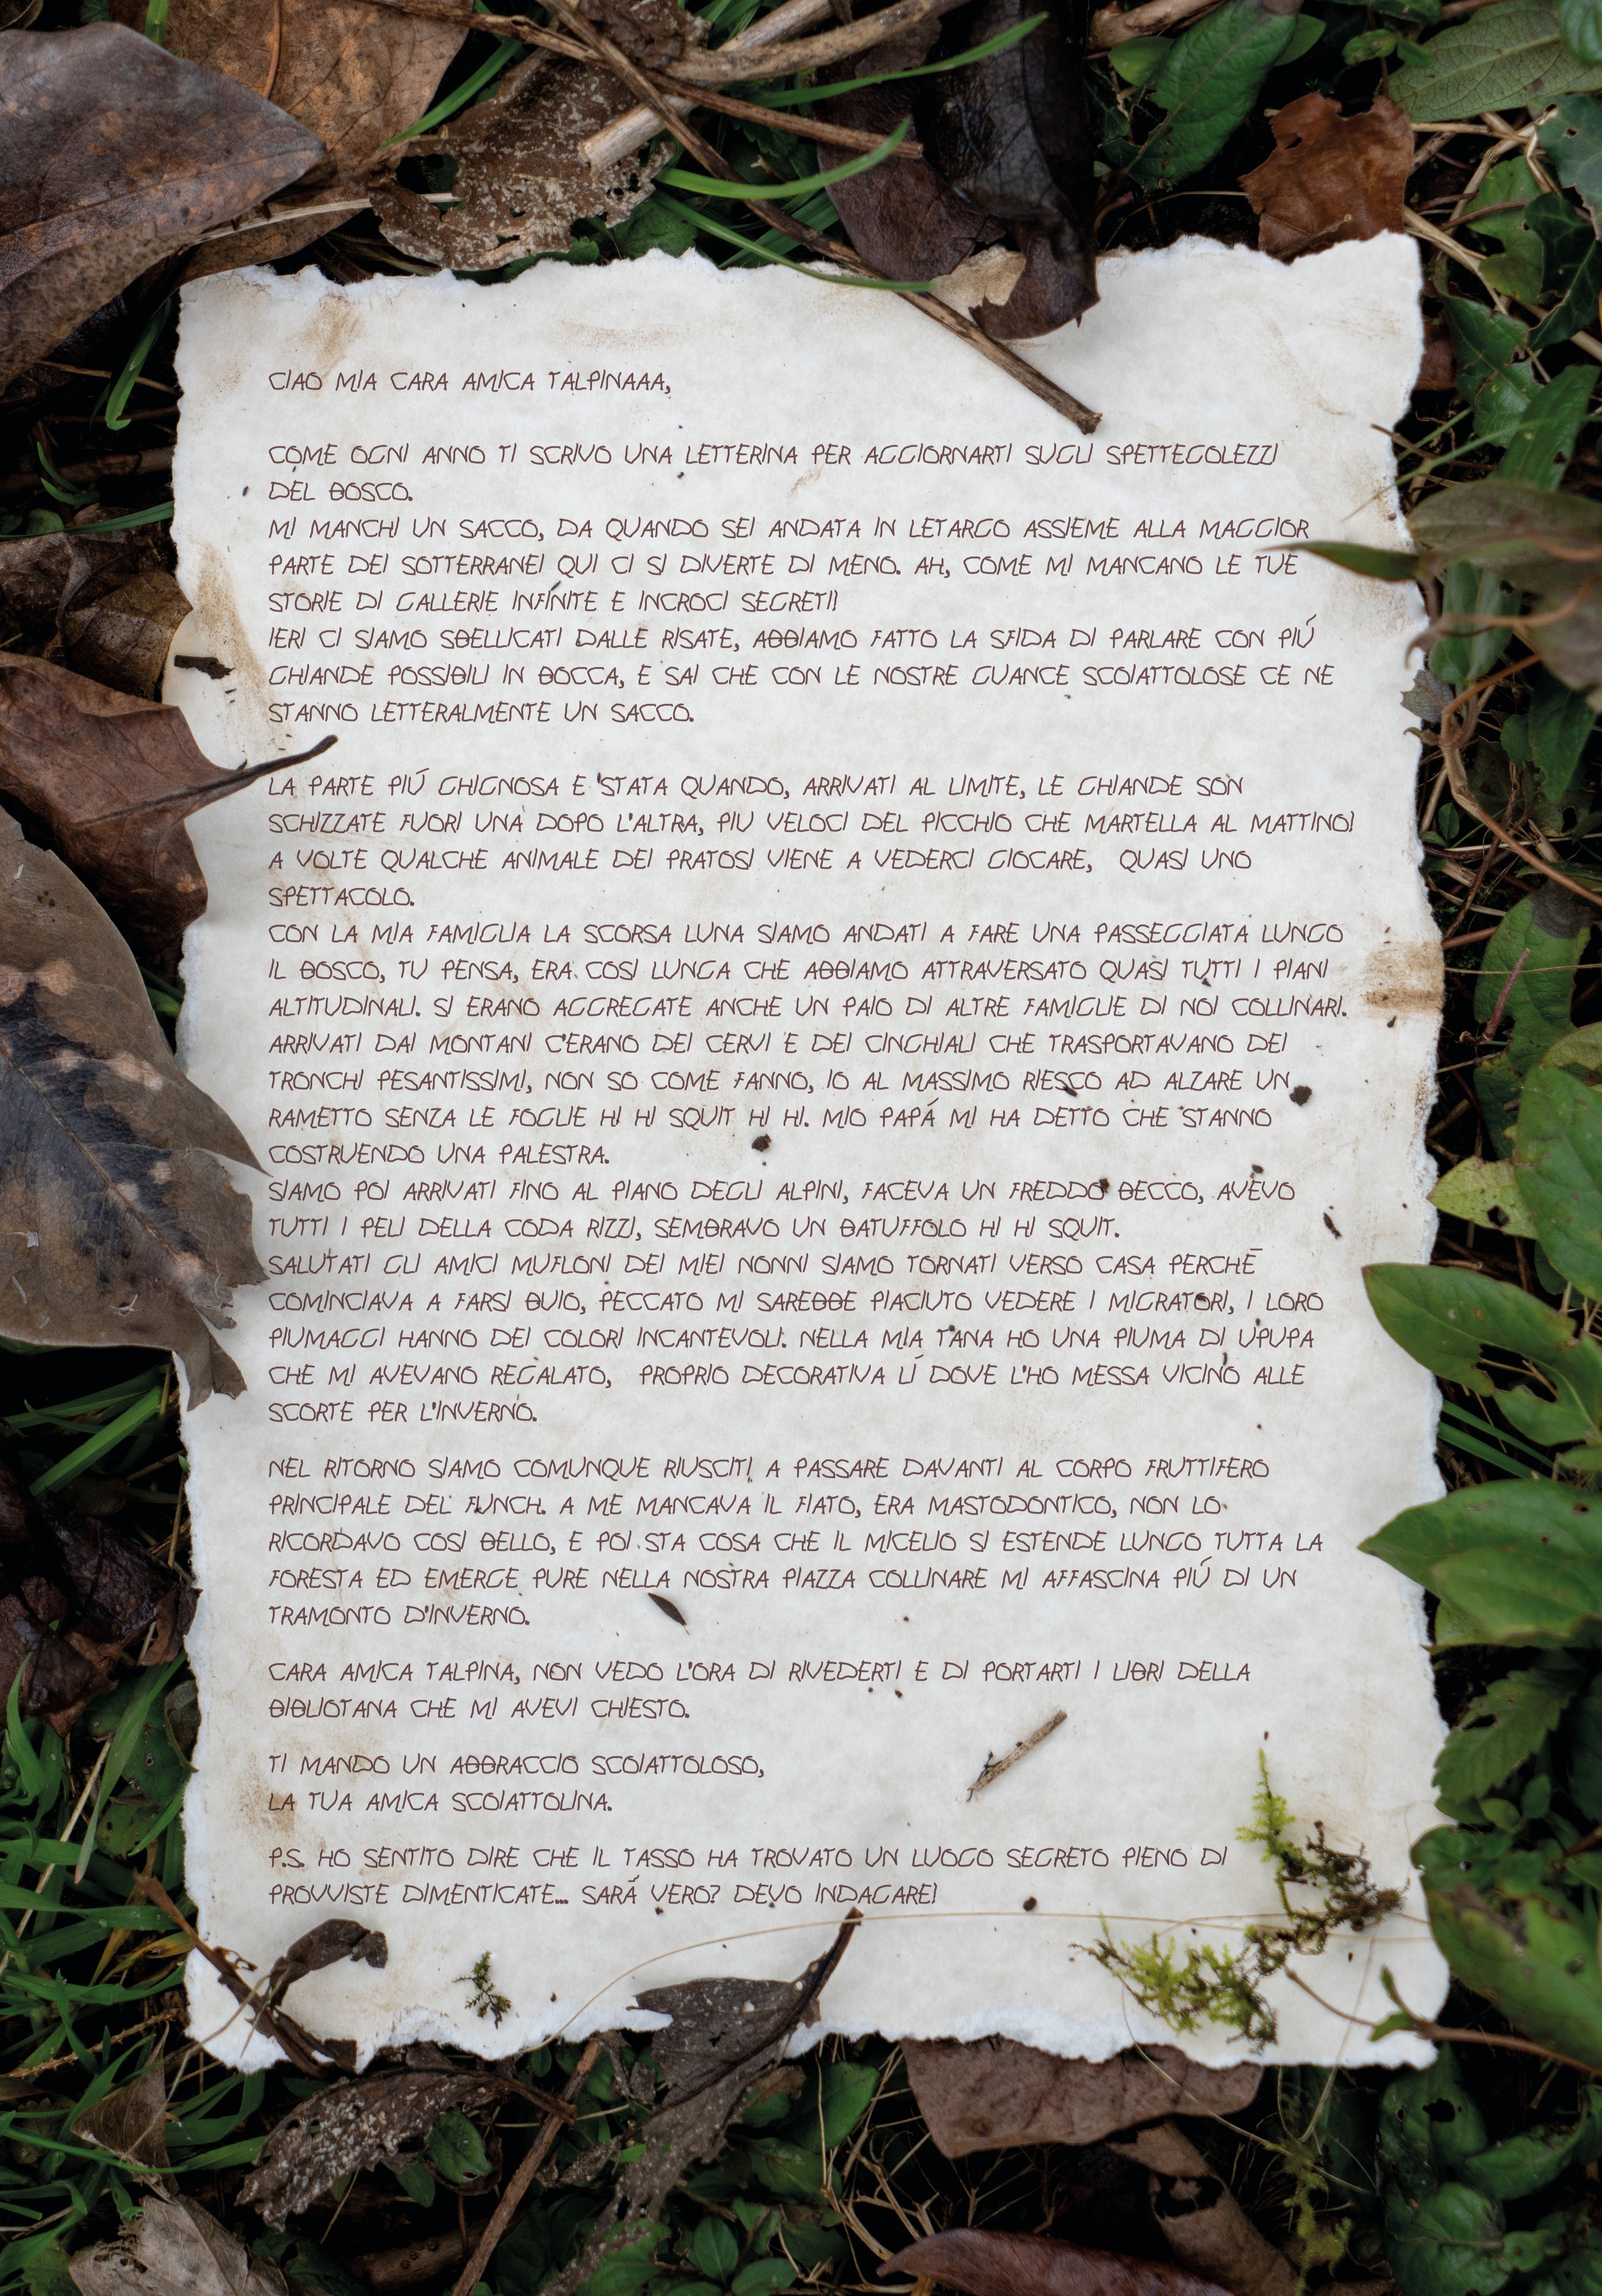 CIAO MIA CARA AMICA TALPINAAA,
COME OGNI ANNO TI SCRIVO UNA LETTERINA PER AGGIORNARTI SUGLI SPETTEGOLEZZI
DEL BOSCO.
MI MANCHI UN SACCO, DA QUANDO SEI ANDATA IN LETARGO ASSIEME ALLA MAGGIOR
PARTE DEI SOTTERRANEI QUI CI SI DIVERTE DI MENO. AH, COME MI MANCANO LE TUE
STORIE DI GALLERIE INFINITE E INCROCI SEGRETI!
IERI CI SIAMO SBELLICATI DALLE RISATE, ABBIAMO FATTO LA SFIDA DI PARLARE CON PIÚ
GHIANDE POSSIBILI IN BOCCA, E SAI CHE CON LE NOSTRE GUANCE SCOIATTOLOSE CE NE
STANNO LETTERALMENTE UN SACCO.
LA PARTE PIÚ GHIGNOSA E 'STATA QUANDO, ARRIVATI AL LIMITE, LE GHIANDE SON
SCHIZZATE FUORI UNA DOPO L'ALTRA, PIU VELOCI DEL PICCHIO CHE MARTELLA AL MATTINO!
A VOLTE QUALCHE ANIMALE DEI PRATOSI VIENE A VEDERCI GIOCARE, QUASI UNO
SPETTACOLO.
CON LA MIA FAMIGLIA LA SCORSA LUNA SIAMO ANDATI A FARE UNA PASSEGGIATA LUNGO
IL BOSCO, TU PENSA, ERA COSI LUNGA CHE ABBIAMO ATTRAVERSATO QUASI TUTTI I PIANI
ALTITUDINALI. SI ERANO AGGREGATE ANCHE UN PAIO DI ALTRE FAMIGLIE DI NOI COLLINARI.
ARRIVATI DAI MONTANI C'ERANO DEI CERVI E DEI CINGHIALI CHE TRASPORTAVANO DEI
TRONCHI PESANTISSIMI, NON SO COME FANNO, IO AL MASSIMO RIESCO AD ALZARE UN
RAMETTO SENZA LE FOGLIE HI HI SQUIT HI HI. MIO PAPÁ MI HA DETTO CHE STANNO
COSTRUENDO UNA PALESTRA.
SIAMO POI ARRIVATI FINO AL PIANO DEGLI ALPINI, FACEVA UN FREDDO BECCO, AVEVO
TUTTI I PELI DELLA CODA RIZZI, SEMBRAVO UN BATUFFOLO HI HI SQUIT.
SALUTATI GLI AMICI MUFLONI DEI MIEI NONNI SIAMO TORNATI VERSO CASA PERCHÉ
COMINCIAVA A FARSI BUIO, PECCATO MI SAREBBE PIACIUTO VEDERE I MIGRATORI, I LORO
PIUMAGGI HANNO DEI COLORI INCANTEVOLI. NELLA MIA TANA HO UNA PIUMA DI UPUPA
CHE MI AVEVANO REGALATO, PROPRIO DECORATIVA LÍ DOVE L'HO MESSA VICINO ALLE
SCORTE PER L'INVERNO.
NEL RITORNO SIAMO COMUNQUE RIUSCITI A PASSARE DAVANTI AL CORPO FRUTTIFERO
PRINCIPALE DEL FUNGH. A ME MANCAVA IL FIATO, ERA MASTODONTICO, NON LO
RICORDAVO COSI BELLO, E POI STA COSA CHE IL MICELIO SI ESTENDE LUNGO TUTTA LA
FORESTA ED EMERGE PURE NELLA NOSTRA PIAZZA COLLINARE MI AFFASCINA PIÚ DI UN
TRAMONTO D'INVERNO.
CARA AMICA TALPINA, NON VEDO L'ORA DI RIVEDERTI E DI PORTARTI I LIBRI DELLA
BIBLIOTANA CHE MI AVEVI CHIESTO.
TI MANDO UN ABBRACCIO SCOIATTOLOSO,
LA TUA AMICA SCOIATTOLINA.
P.S. HO SENTITO DIRE CHE IL TASSO HA TROVATO UN LUOGO SEGRETO PIENO DI
PROVVISTE DIMENTICATE... SARÁ VERO? DEVO INDAGARE!